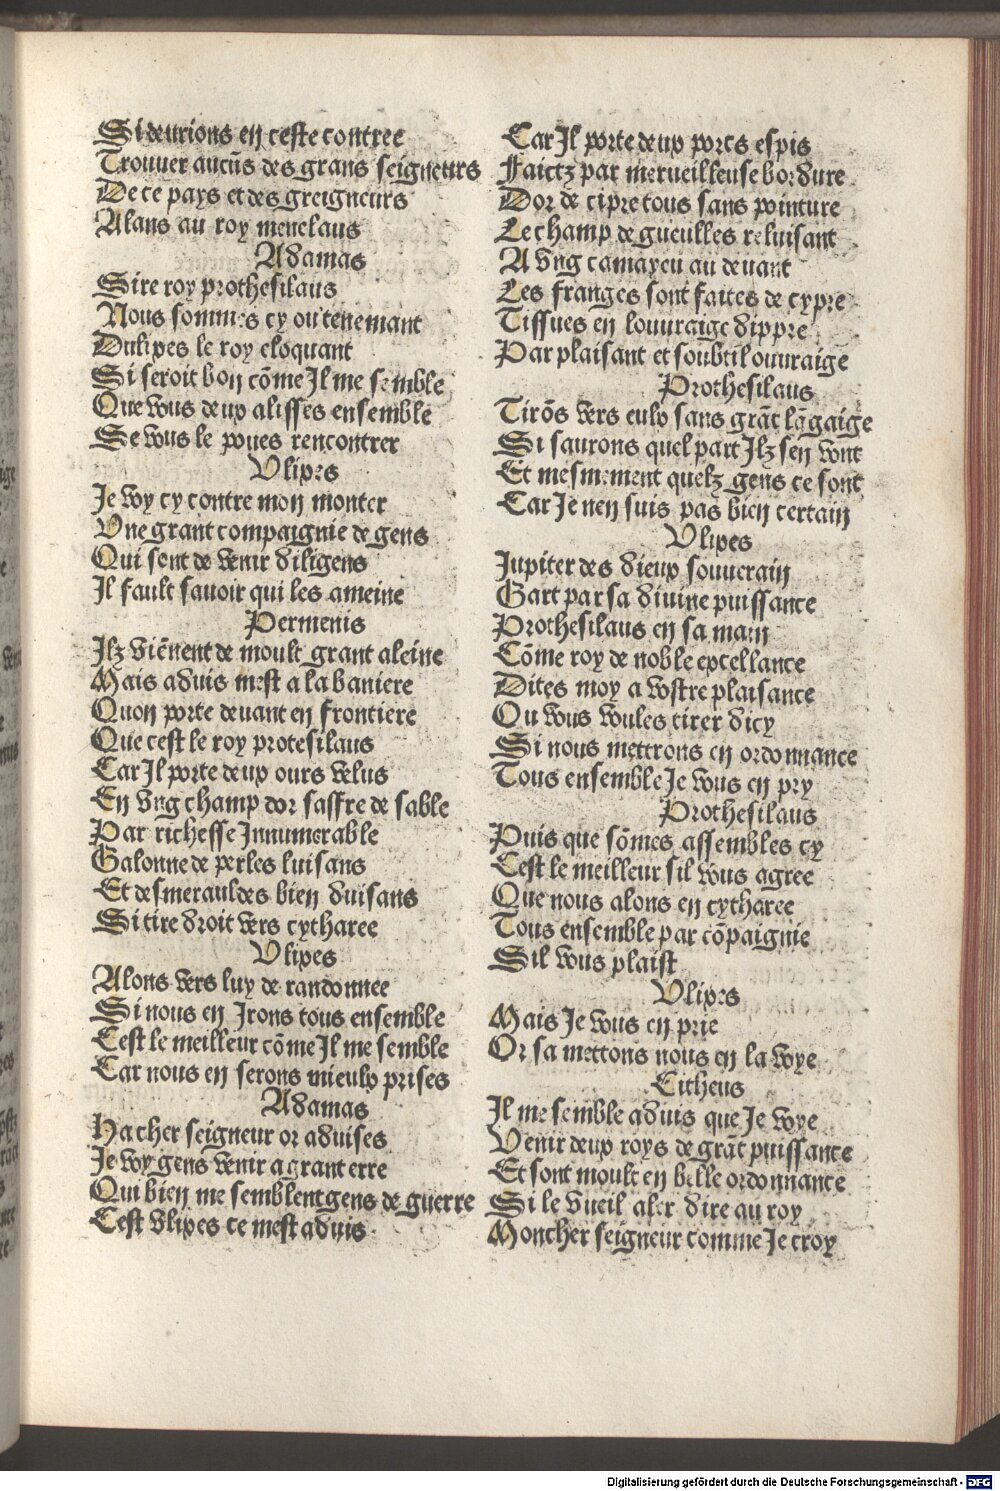 Si deurions en ceste contree
Trouuer aucūs des grans seigneurs
De ce pays et des greigneurs
Alans au roy menelaus
Adamas
Sire roy prothesilaus
Nous sommes cy ou tenemant
Dulixes le roy eloquant
Si seroit bon cōme Il me semble
Que vous deux alisses ensemble
Se vous le poues rencontrer
Vlixes
Je voy cy contre mon monter
Vne grant compaignie de gens
Qui sont de venir diligens
Il fault sauoir qui les ameine
Permenis
Ilz viēnent de moult grant aleine
Mais aduis mest a la baniere
Quon porte deuant en frontiere
Que cest le roy protesilaus
Car Il porte deux ours velus
En vng champ dor saffre de sable
Par richesse Innumerable
Galonne de perles luisans
Et desmerauldes bien duisans
Si tire droit vers cytharee
Vlixes
Alons vers luy de randonnee
Si nous en Irons tous ensemble
Cest le meilleur cōme Il me semble
Car nous en serons mieulx prises
Adamas
Ha cher seigneur or aduises
Je voy gens venir a grant erre
Qui bien me semblent gens de guerre
Cest vlixes ce mest aduis
Car Il porte deux porcs espis
Faictz par merueilleuse bordure
Dor de cipre tous sans pointure
Le champ de gueulles reluisant
A vng camayeu au deuant
Les franges sont faites de cypre
Tissues en louuraige dippre
Par plaisant et soubtil ouuraige
Prothesilaus
Tirōs vers eulx sans grāt lāgaige
Si saurons quel part Ilz sen vont
Et mesmement quelz gens ce sont
Car Je nen suis pas bien certain
Vlixes
Jupiter des dieux souuerain
Gart par sa diuine puissance
Prothesilaus en sa main
Cōme roy de noble excellance
Dites moy a vostre plaisance
Ou vous voules tirer dicy
Si nous mettrons en ordonnance
Tous ensemble Je vous en pry
Prothesilaus
Puis que sōmes assembles cy
Cest le meilleur sil vous agree
Que nous alons en cytharee
Tous ensemble par cōpaignie
Sil vous plaist
Vlixes
Mais Je vous en prie
Or sa mettons nous en la voye
Citheus
Il me semble aduis que Je voye
Venir deux roys de grāt puissance
Et sont moult en belle ordonnance
Si le vueil aler dire au roy
Moncher seigneur comme Je croy
Digitalisierung gefördert durch die Deutsche Forschungsgemeinschaft - DFG